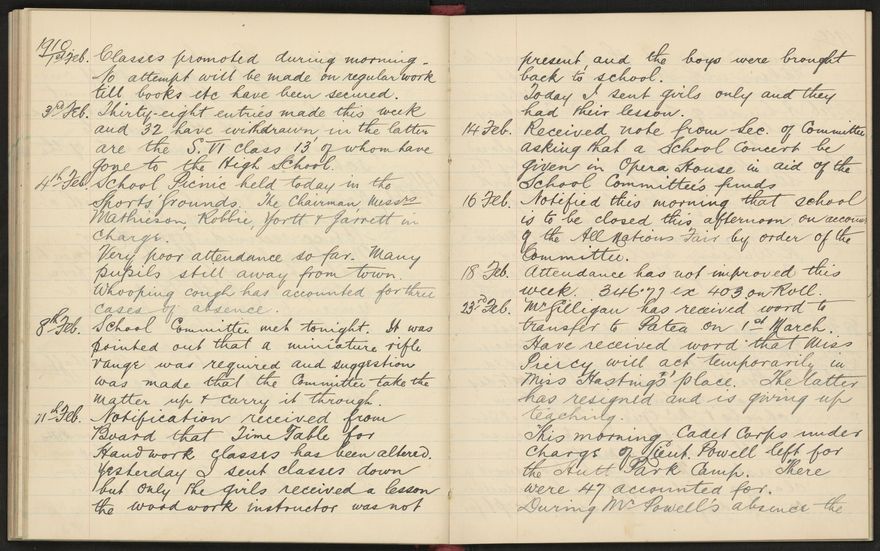 1910
1st Feb. Classes promoted during morning.
No attempt will be made on regular work
till books etc have been secured.
3rd Feb. Thirty-eight entries made this week
and 32 have withdrawn in the latter
are the S. VI class 13 of whom have
gone to the High School.
4th Feb. School Picnic held today in the
Sports Grounds. The Chairman Messrs
Mathieson, Robbie, & Garrett in
charge.
Very poor attendance so far. Many
pupils still away from town.
Whooping cough has accounted for three
cases of absence.
8th Feb. School Committee met tonight. It was
pointed out that a miniature rifle
range was required and suggestion
was made that the Committee take the
matter up & carry it through.
11th Feb. Notification received from
Board that Time Table for
Handwork classes has been altered.
Yesterday I sent classes down
but only the girls received a lesson
the woodwork instructor was not
present, and the boys were brought
back to school.
Today I sent girls only and they
had their lesson.
14 Feb. Received note from Sec. of Committee
asking that a School Concert be
given in Opera House in aid of the
School Committee's funds
16 Feb. Notified this morning that school
is to be closed this afternoon on account
of the All Nations Fair by order of the
Committee.
18 Feb. Attendance has not improved this
week. 346.77 ex 403 on Roll.
23rd Feb. Mr Gilligan has received word to
transfer to Patea on 1st March.
Have received word that Miss
Piercy will act temporarily in
Miss Hastings' place. The latter
has resigned and is giving up
teaching.
This morning Cadet Corps under
charge of Lieut. Powell left for
the Hutt Park Camp. There
were 47 accounted for.
During Mr Powell's absence the